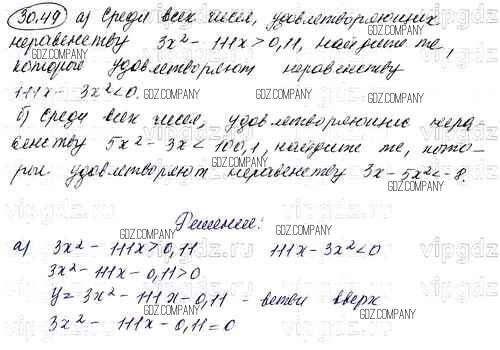 30.49 а) Среди всех чисел, удовлетворяющих
неравенству 3x² - 111x > 0,11, найдите те,
которые удовлетворяют неравенству
111x - 3x² < 0.
б) Среди всех чисел, удовлетворяющих нера-
венству 5x² - 3x < 100,1, найдите те, кото-
рые удовлетворяют неравенству 3x - 5x² < -8.
Решение:
а) 3x² - 111x > 0,11 111x - 3x² < 0
3x² - 111x - 0,11 > 0
y = 3x² - 111x - 0,11 - ветви вверх
3x² - 111x - 0,11 = 0
GDZ.COMPANY
vipgdz.ru